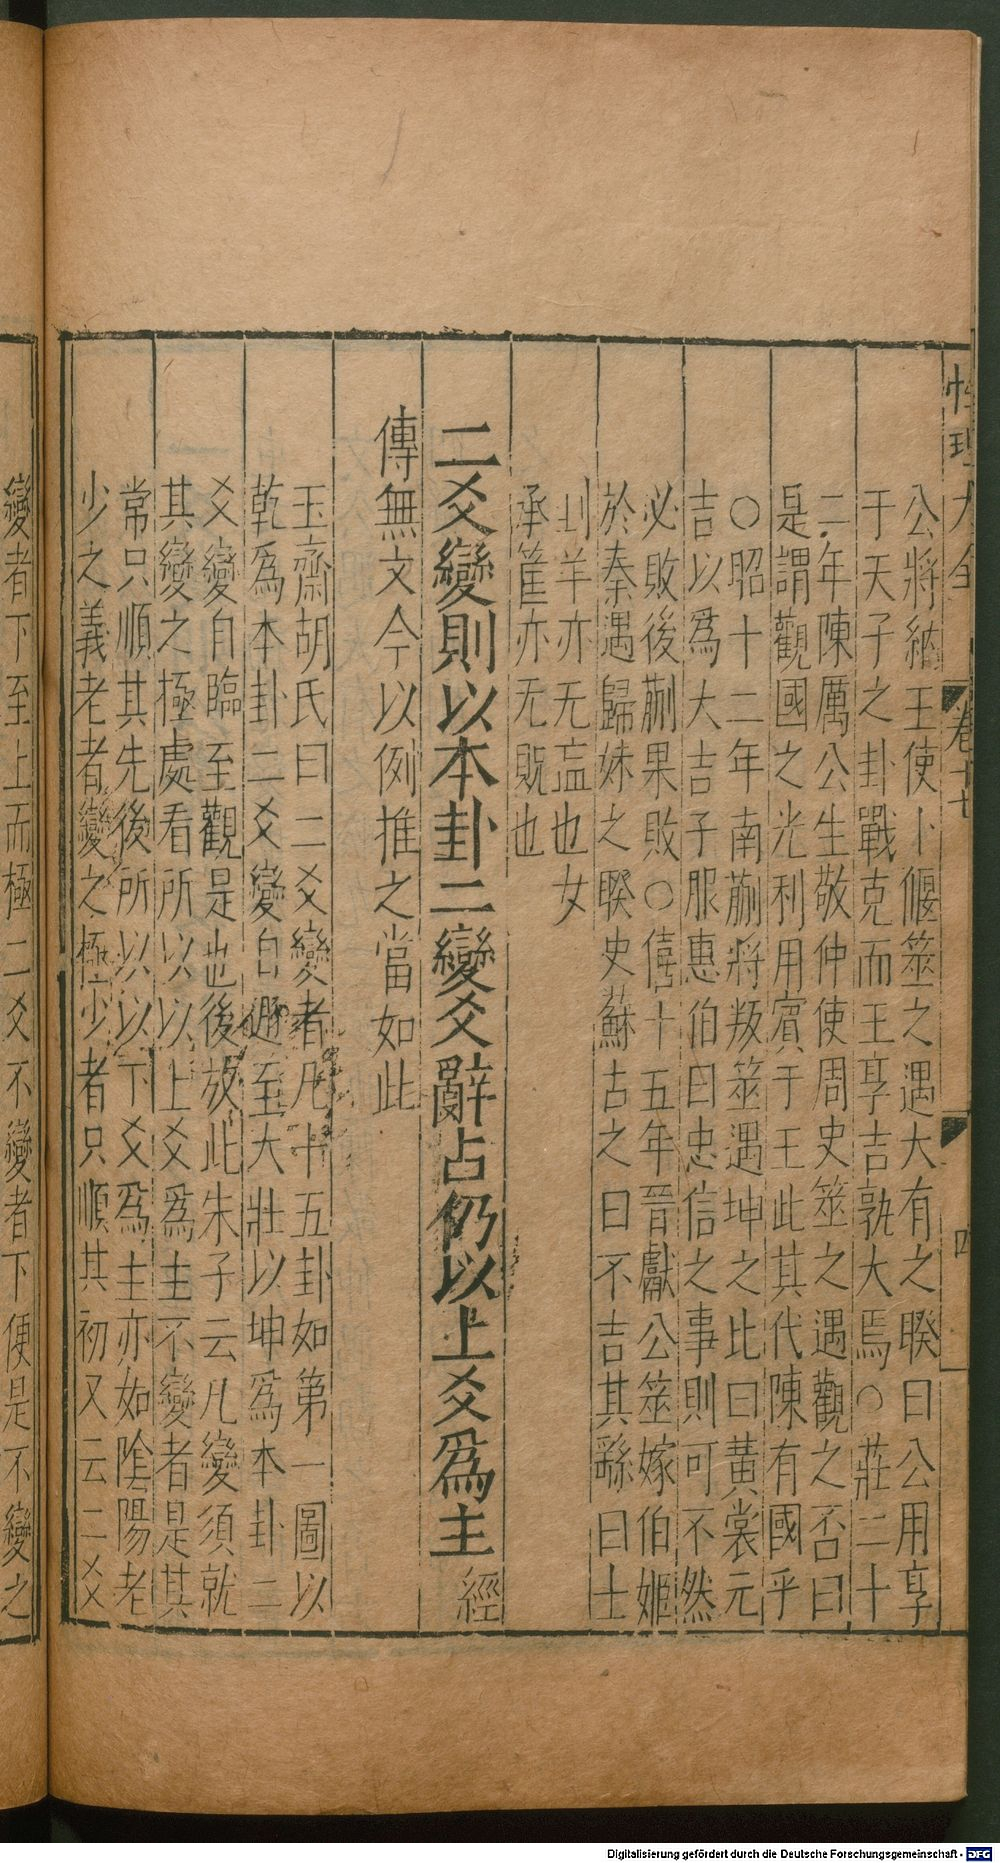 性理大全 卷十七 四
公將納王使卜偃筮之遇大有之睽曰公用享
于天子之卦戰克而王享吉孰大焉○莊二十
二年陳厲公生敬仲使周史筮之遇觀之否曰
是謂觀國之光利用賓于王此其代陳有國乎
○昭十二年南蒯將叛筮遇坤之比曰黃裳元
吉以爲大吉子服惠伯曰忠信之事則可不然
必敗後蒯果敗○僖十五年晉獻公筮嫁伯姬
於秦遇歸妹之睽史蘇占之曰不吉其繇曰士
刲羊亦无衁也女
承筐亦无貺也
二爻變則以本卦二變爻辭占仍以上爻爲主經
傳無文今以例推之當如此
玉齋胡氏曰二爻變者凡十五卦如第一圖以
乾爲本卦二爻變自遯至大壯以坤爲本卦二
爻變自臨至觀是也後放此朱子云凡變須就
其變之極處看所以以上爻爲主不變者是其
常只順其先後所以以下爻爲主亦如陰陽老
少之義老者變之極少者只順其初又云二爻
變者下至上而極二爻不變者下便是不變之
Digitalisierung gefördert durch die Deutsche Forschungsgemeinschaft - DFG